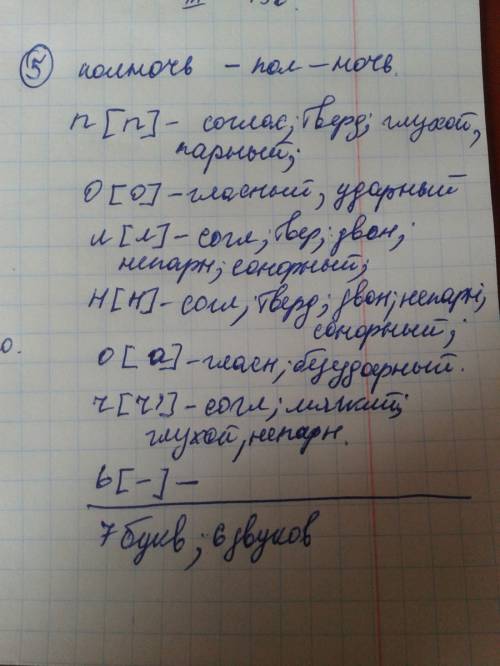 5 полночь - пол - ночь.
п [п] - соглас; тверд; глухой,
парный;
О [О] - гласный, ударный
л [л] - согл; твер; звон;
непарн; сонорный;
Н [Н] - согл; тверд; звон; непарн;
сонорный;
о.
о [а] - гласн; безударный.
ч [ч'] - согл; мягкий;
глухой, непарн.
ь [-] -
7 букв; 6 звуков